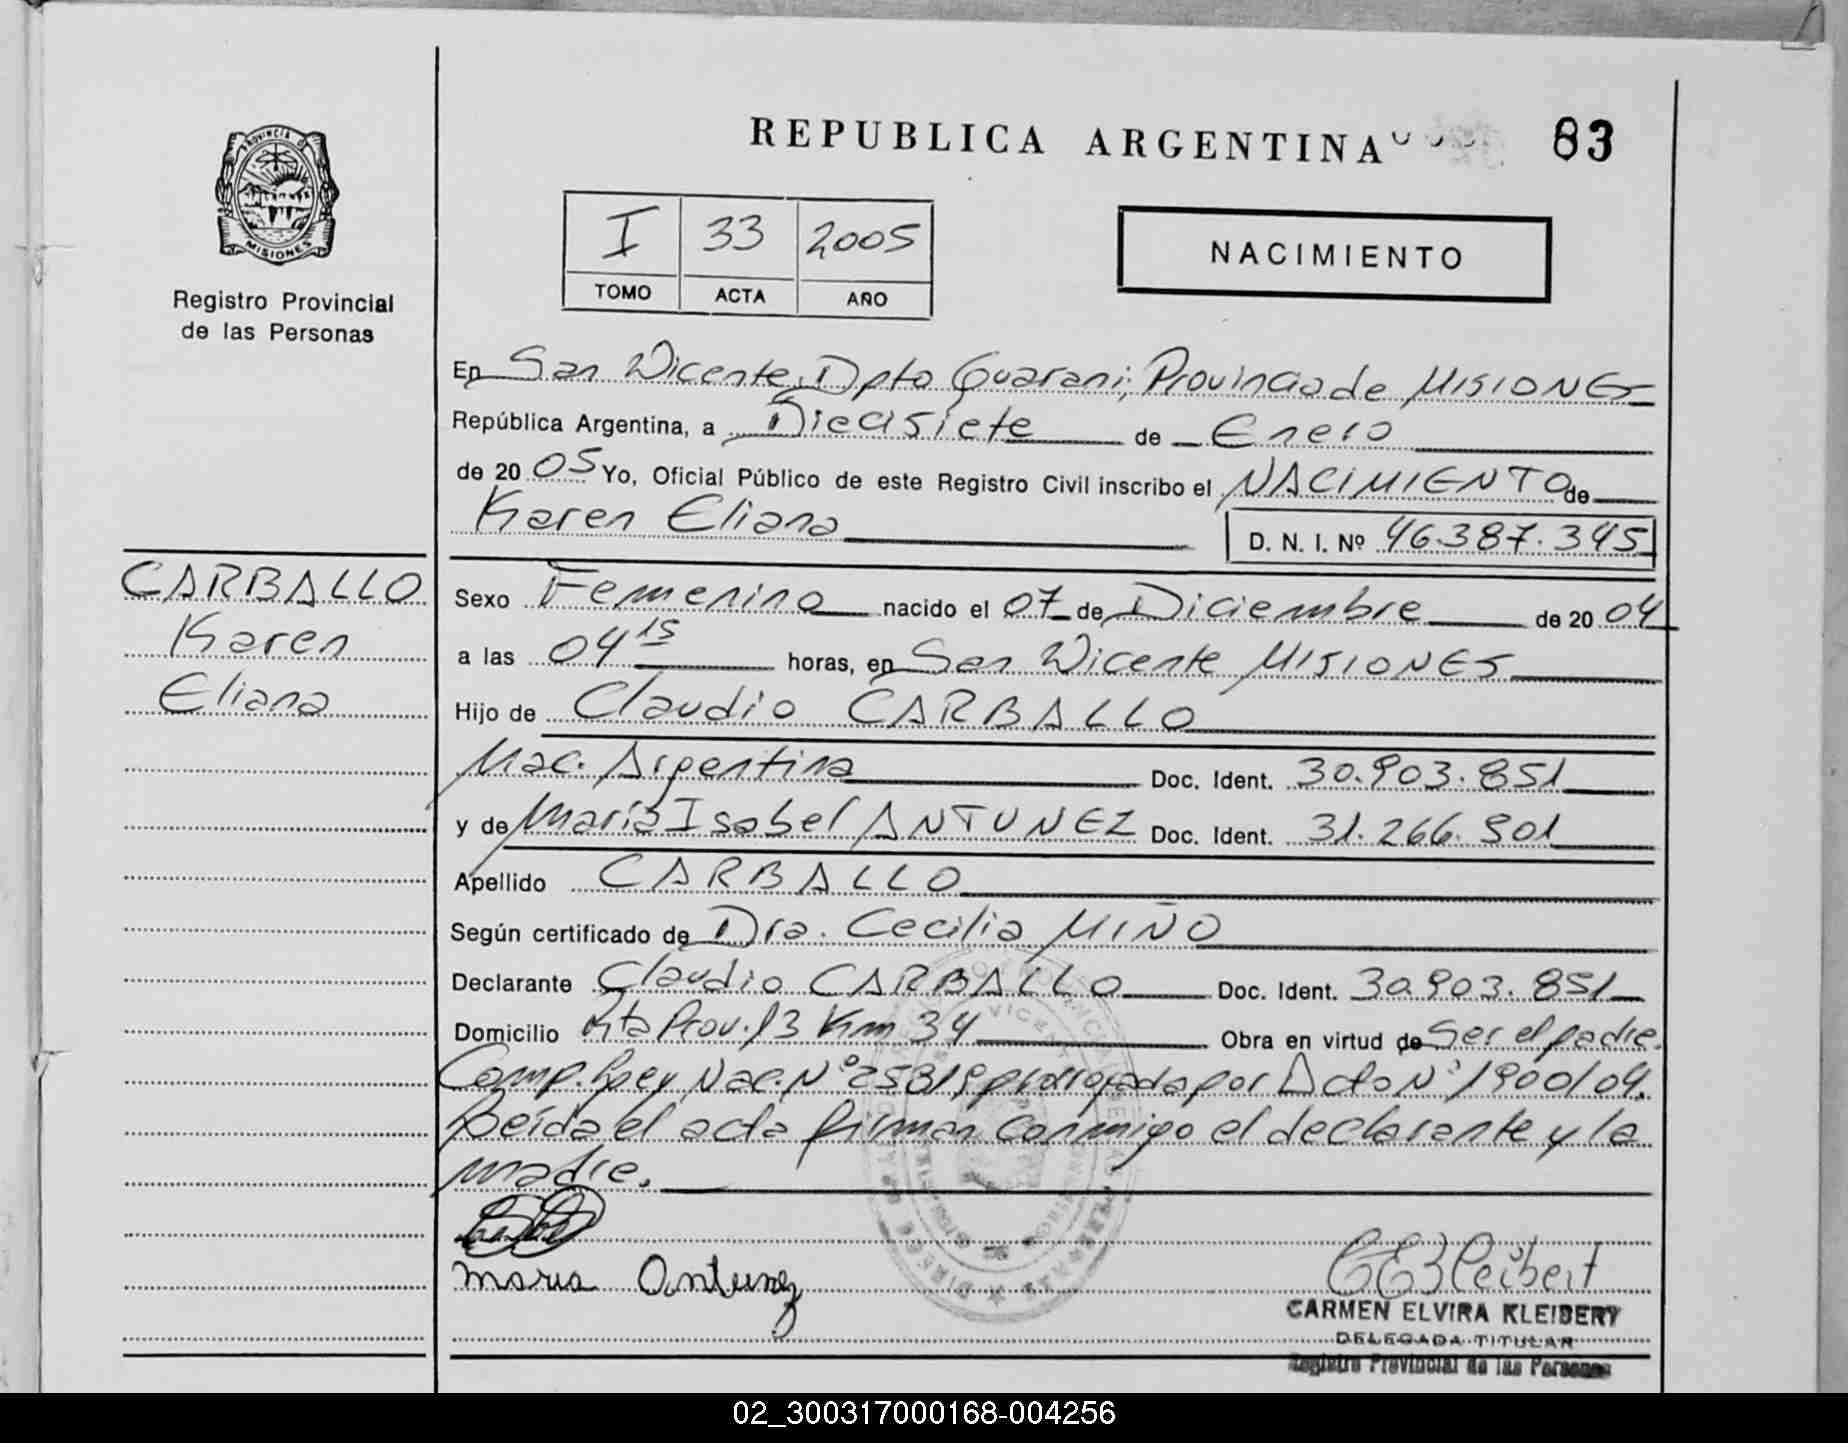 PROVINCIA DE
MISIONES
Registro Provincial
de las Personas
CARBALLO
Karen
Eliana
REPUBLICA ARGENTINA 83
I 33 2005
TOMO ACTA AÑO
NACIMIENTO
En San Vicente, Dpto Guarani; Provincia de MISIONES
República Argentina, a Diecisiete de Enero
de 2005 Yo, Oficial Público de este Registro Civil inscribo el NACIMIENTO de
Karen Eliana D. N. I. Nº 46.387.345
Sexo Femenino nacido el 07 de Diciembre de 2004
a las 04 15 horas, en San Vicente MISIONES
Hijo de Claudio CARBALLO
Nac. Argentina Doc. Ident. 30.903.851
y de María Isabel ANTUNEZ Doc. Ident. 31.266.901
Apellido CARBALLO
Según certificado de Dra. Cecilia MIÑO
Declarante Claudio CARBALLO Doc. Ident. 30.903.851
Domicilio Rta Prov. 13 Km 34 Obra en virtud de Ser el padre.
Comp. Ley Nac. Nº 25819 prorrogada por Dcto Nº 1900/04.
Leída el acta firman conmigo el declarante y la
madre.
Maria Antunez
CEKleibert
CARMEN ELVIRA KLEIBERT
DELEGADA TITULAR
Registro Provincial de las Personas
02_300317000168-004256